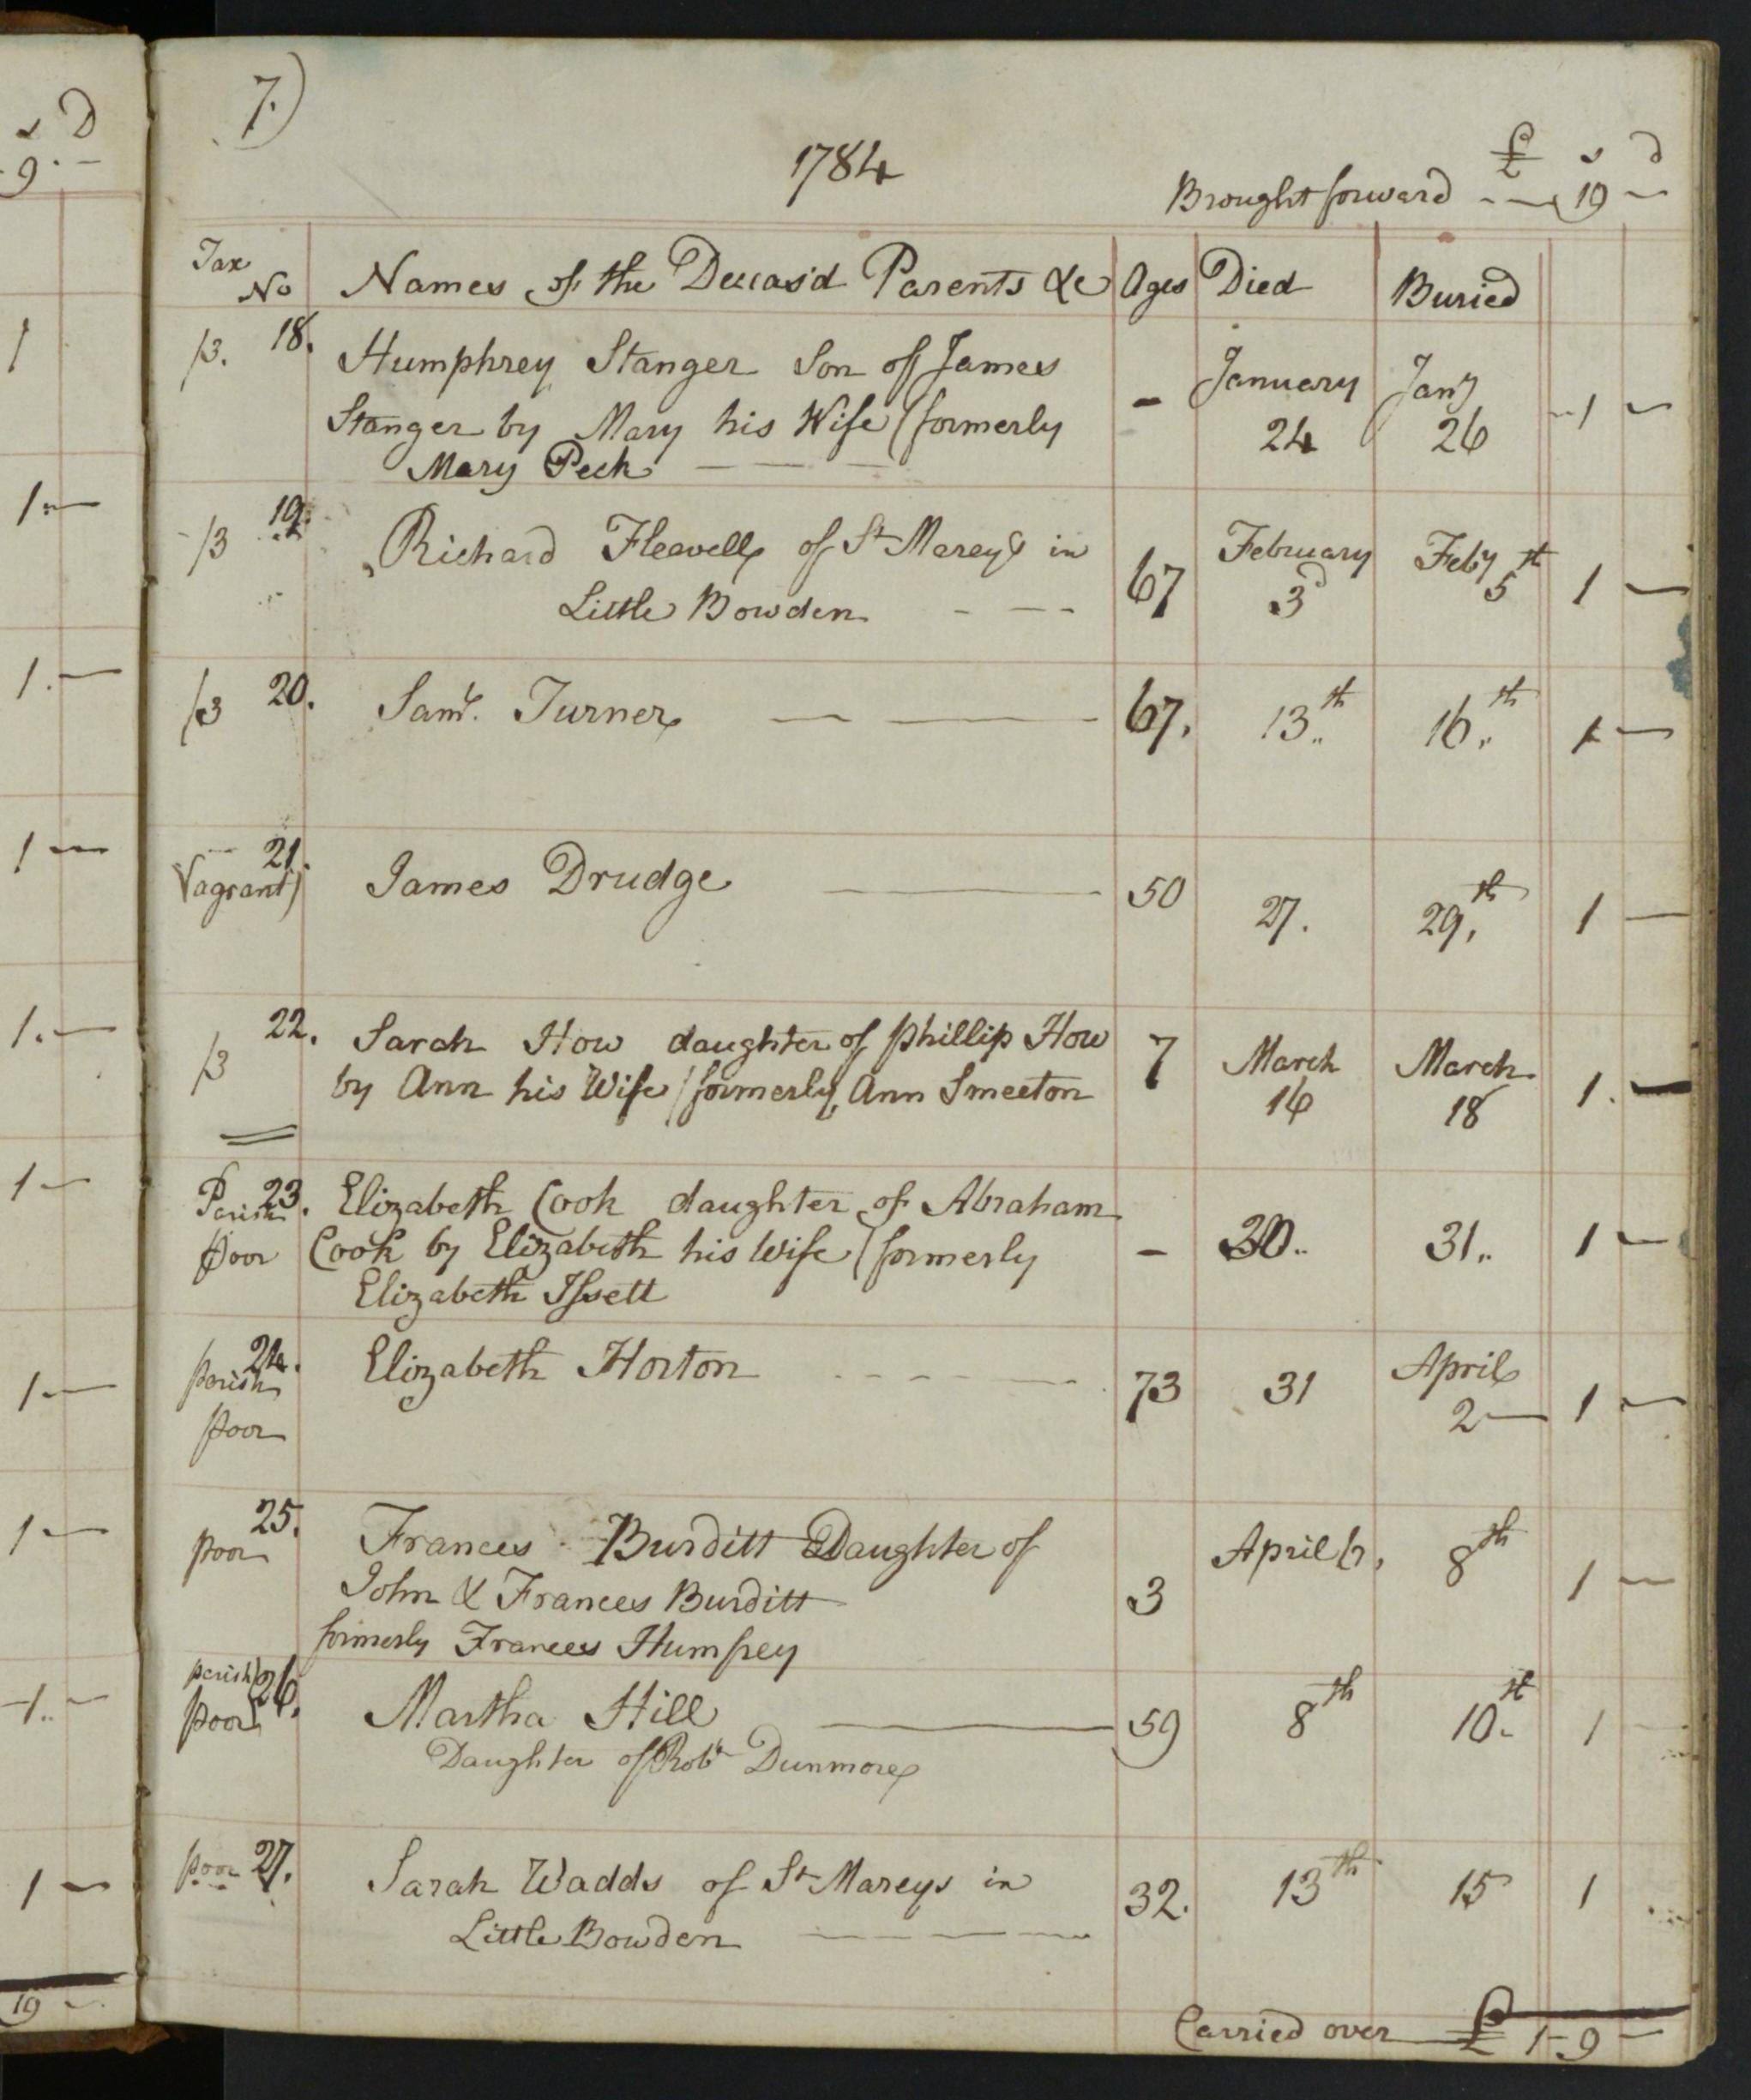 s D
9 · –
7.)
1784
£ s d
Brought forward - — 19 —
Tax No Names of the Deceas'd Parents &c Ages Died Buried
/3. 18. Humphrey Stanger Son of James
Stanger by Mary his Wife (formerly
Mary Peck — — —
- January 24 Jany 26 1 –
/3 19. Richard Fleavell of St Marey's in
Little Bowden - - -
67 February 3d Feby 5th 1 —
/3 20. Saml. Turner — ——— 67. 13th 16th 1 —
Vagrant) 21. James Drudge ——— 50 27. 29th 1 —
/3 22. Sarah How daughter of Phillip How
by Ann his Wife (formerly Ann Smeeton
7 March 16 March 18 1. —
Parish Poor 23. Elizabeth Cook daughter of Abraham
Cook by Elizabeth his Wife (formerly
Elizabeth Issett
– 30. 31. 1 –
Parish Poor 24. Elizabeth Horton - - - - - 73 31 April 2 — 1 —
Poor 25. Frances Burditt Daughter of
John & Frances Burditt
formerly Frances Humfrey
3 April 6, 8th 1 —
Parish Poor 26. Martha Hill ———
Daughter of Robt Dunmore
59 8th 10th 1
Poor 27. Sarah Wadds of St Mareys in
Little Bowden — — — —
32. 13th 15 1
Carried over — £ 1 – 9 —
1
1 –
1. —
1 —
1. —
1 –
1. —
1 –
1.. –
1 –
19 –